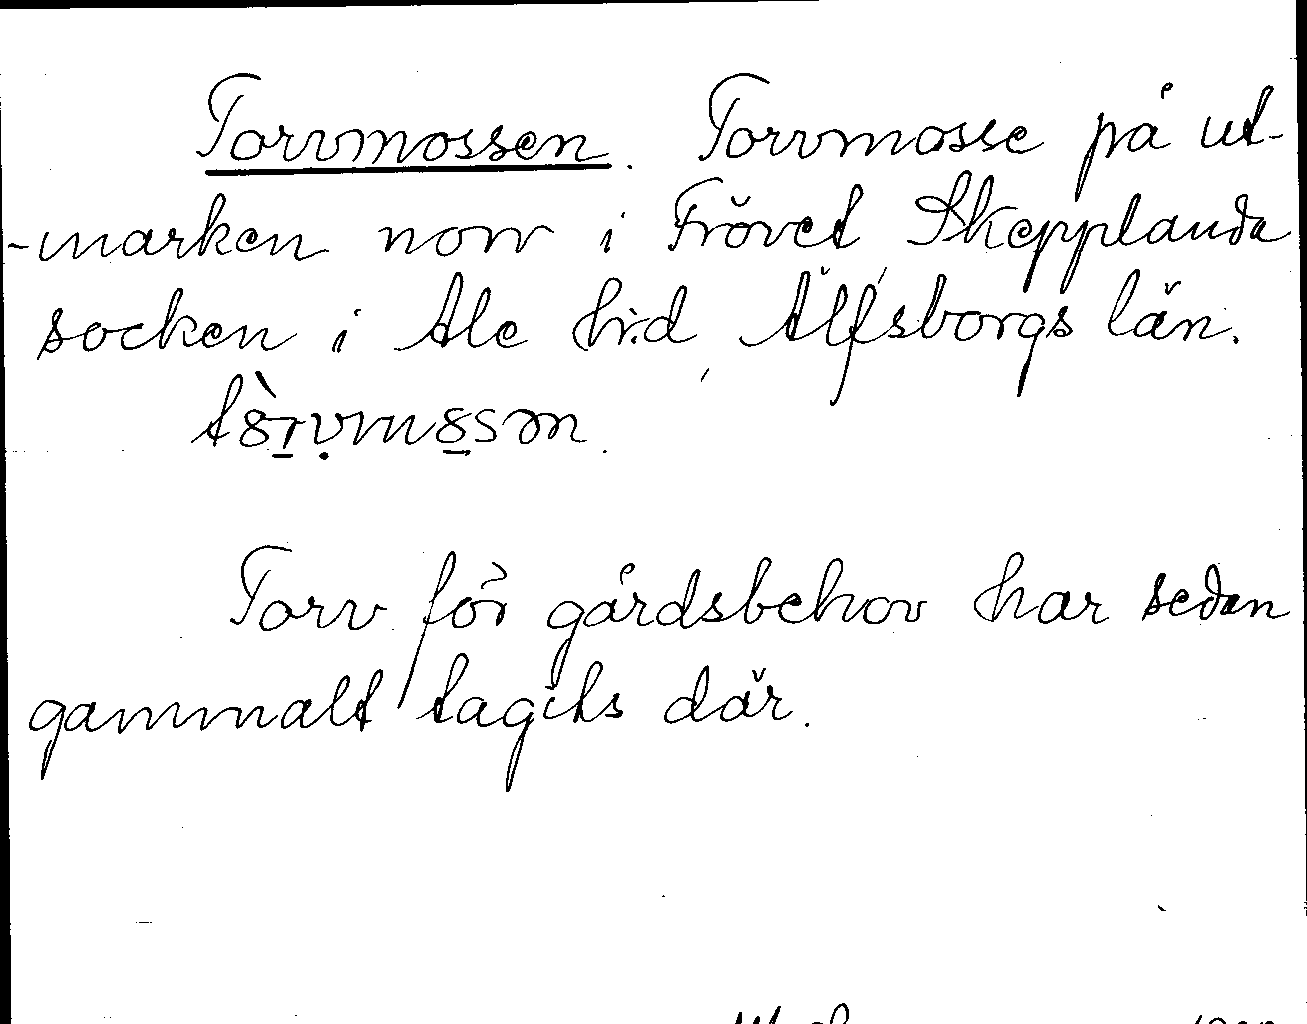 Torvmossen. Torvmosse på ut-
-marken norr i Frövet Skepplanda
socken i Ale hrd, Älfsborgs län.

Torv för gårdsbehov har sedan
gammalt tagits där.